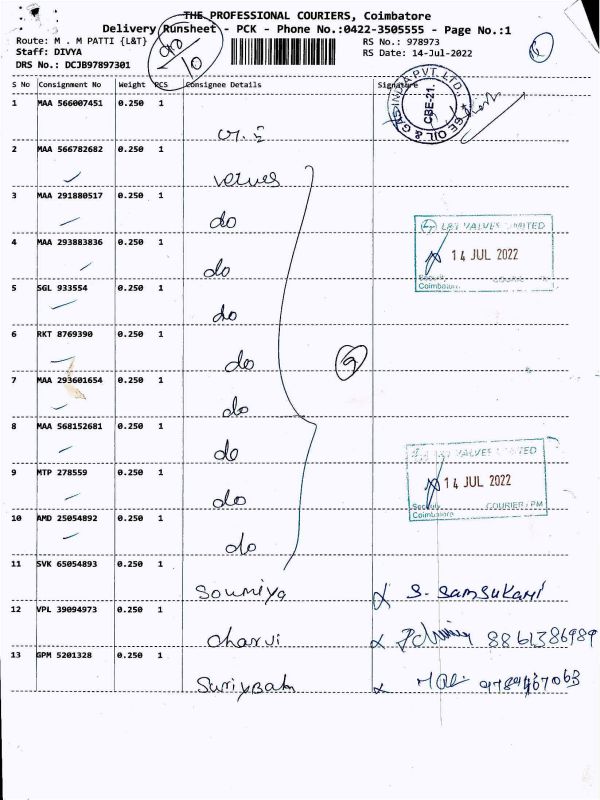 THE PROFESSIONAL COURIERS, Coimbatore
Delivery Runsheet - PCK - Phone No.:0422-3505555 - Page No.:1
Route: M . M PATTI {L&T}
RS No.: 978973
Staff: DIVYA
RS Date: 14-Jul-2022
DRS No.: DCJB97897301
10
S No Consignment No Weight PCS Consignee Details Signature
1 MAA 566007451 0.250 1
CBE-21.
2 MAA 566782682 0.250 1 valves
3 MAA 291880517 0.250 1 do
L&T VALVES LIMITED
4 MAA 293883836 0.250 1 do
14 JUL 2022
Coimbatore
5 SGL 933554 0.250 1 do
6 RKT 8769390 0.250 1 do
9
7 MAA 293601654 0.250 1 do
8 MAA 568152681 0.250 1 do
L&T VALVES LIMITED
9 MTP 278559 0.250 1 do
14 JUL 2022
Security COURIER / PM
Coimbatore
10 AMD 25054892 0.250 1 do
11 SVK 65054893 0.250 1 Soumiya S. Samsukani
12 VPL 39094973 0.250 1 charvi 8861386989
13 GPM 5201328 0.250 1